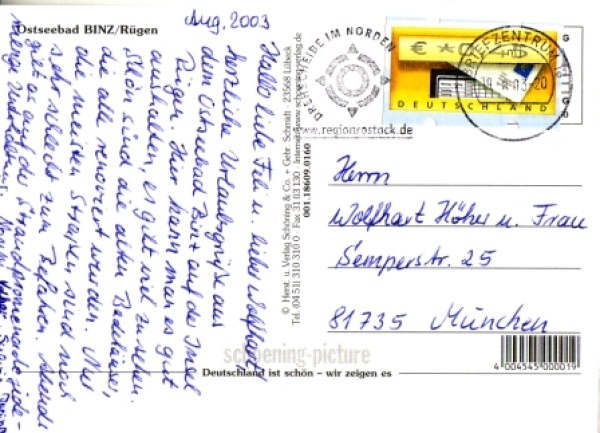 Ostseebad BINZ/Rügen
Aug. 2003
Hallo liebe Feli u. lieber Wolfhart!
herzliche Urlaubsgrüße aus
dem Ostseebad Binz auf der Insel
Rügen. Hier kann man es gut
aushalten, es gibt viel zu sehen.
Schön sind die alten Badehäuser,
die alle renoviert wurden. Nur
die meisten Straßen sind noch
sehr schlecht zum Befahren. Abends
gibt es auf der Strandpromenade jede-
menge Unterhaltung.
© Herst. u. Verlag Schöning & Co. + Gebr. Schmidt · 23558 Lübeck
Tel. (04 51) 310 310 0 · Fax 31 03 130 · Internet: www.schoening-verlag.de
001.18609.0160
DREHSCHEIBE IM NORDEN
www.regionrostock.de
€
DEUTSCHLAND
BRIEFZENTRUM 18
03-20
Herrn
Wolfhart Höher u. Frau
Semperstr. 25
81735 München
schoening-picture
Deutschland ist schön – wir zeigen es
4 004545 000019